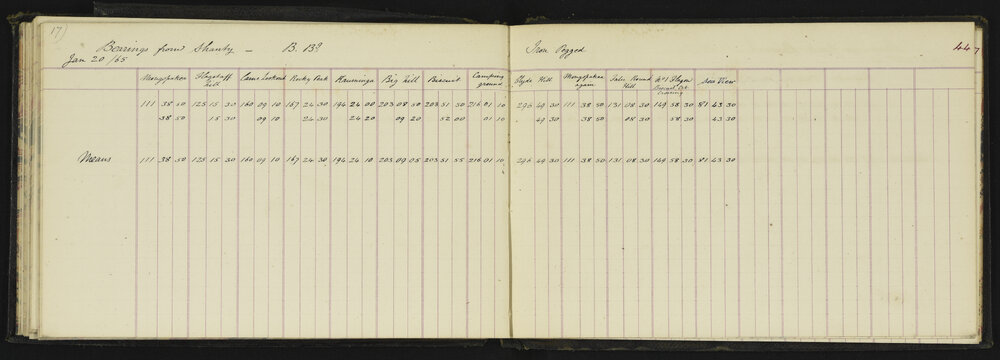 17)
Bearings from Shanty — B. Bd Iron Pegged 44
Jan 20/65
Flagstaff Hill Cairn Lookout Rocky Peak Big hill Biscuit Camping ground Clyde Hill again Round Hill No 1 Sea View
111 38 50 125 15 30 160 09 10 167 24 30 194 24 00 203 08 50 203 51 50 216 01 10 296 49 30 111 38 50 131 08 30 149 58 30 81 43 30
38 50 15 30 09 10 24 30 24 20 09 20 52 00 01 10 49 30 38 50 08 30 58 30 43 30
Means 111 38 50 125 15 30 160 09 10 167 24 30 194 24 10 203 09 05 203 51 55 216 01 10 296 49 30 111 38 50 131 08 30 149 58 30 81 43 30